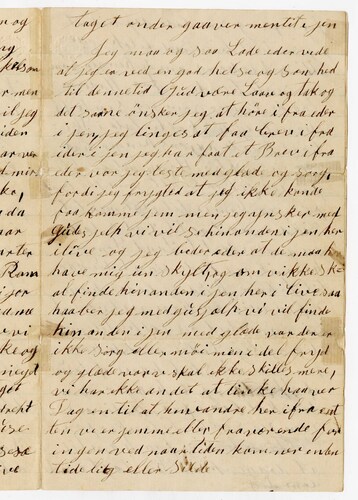 taget onder gaaver mentit i jen
Jeg maa og saa Lade eder vide
at jeg er ved en god helse og Sonhed
til denne tid Gud være Laav og tak og
det saame önsker jeg at höre i fra eder
i jen, jeg linges at faa brev i fra
eder i jen jeg har faat et Brev i fra
eder vor jeg leste med glæd og sorg
fordi jeg frygted at jeg ikke konde
faa komme jem men jeg ønsker med
Guds jelp vi vil se hinanden i jen her
i live og jeg beder eder at de maa
have mig un skyltz om vi ikke sk
al finde hinanden i jen her i live saa
haaber jeg med guds jelp vi vil finde
hinanden i jen med glæde vor der er
ikke Sorg eller möi men i del fryd
og glæd vor vi skal ikke skilles mere,
vi har ikke andet at tenke haa ver
Dag en til at hin andre her i fra ent
den ve er jemme eller fra værende for
ingen ved naar tiden kommer enten
tide lig eller Silde
og
tiden
ko,
da
Ram
i jor
ke og
got
live